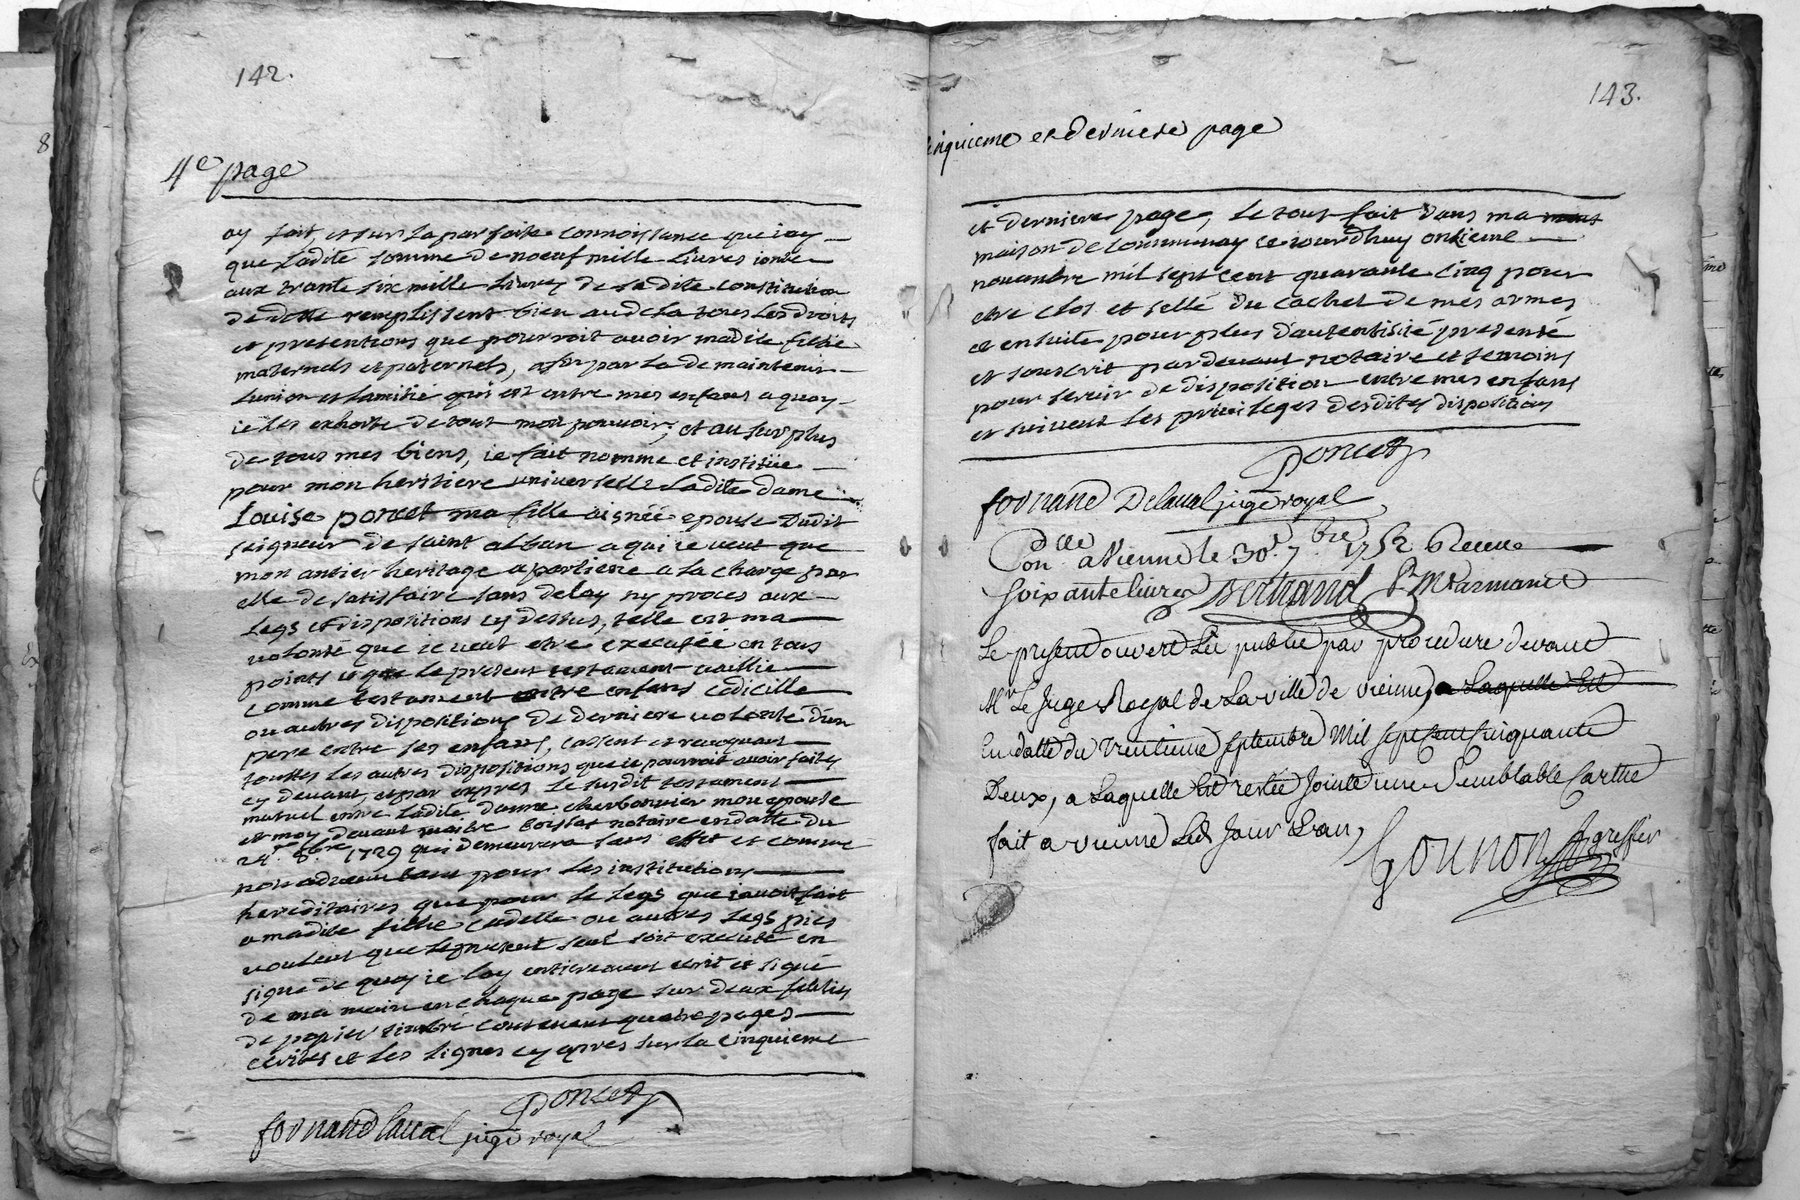 142.
4e page
ay fait et sur la parfaite connoissance que iay
que ladite somme de noeuf mille livres iointe
aux trante six mille livres de sadite constitution
de dotte remplissent bien audela tous les droits
et pretentions que pourroit avoir madite fillie
maternels et paternels, affin par la de maintenir
lunion et lamitié qui est entre mes enfans a quoy
ie les exhorte de tout mon pouvoir, et au surplus
de tous mes biens, ie fait nomme et institüe
pour mon heritiere universelle ladite dame
Louise poncet ma fille aisnée epouse dudit
seigneur de saint alban a qui ie veut que
mon antier heritage apartiene a la charge par
elle de satisfaire sans delay ny proces aux
legs et dispositions cy dessus, telle est ma
volonté que ie veut etre executée en tous
points et que le present testament vaillie
comme testament entre enfans codicille
ou autres dispositions de derniere volonté d'un
pere entre ses enfans, cassent et revoquant
touttes les autres dispositions que ie pourroit avoir faites
cy devant et par expres le susdit testament
mutuel entre ladite dame charbonnier mon epouse
et moy devant maitre boissat notaire en datte du
24e 8bre 1729 qui demeurera sans effet et comme
non advenu tant pour les institutions
hereditaires que pour le legs que iavoit fait
a madite fillie cadette ou autres legs pies
voulent que le present seul soit executé en
signe de quoy ie lay entierement ecrit et signé
de ma main en chaque page sur deux feullies
de papier timbré contenant quatre pages
ecrites et les lignes cy apres sur la cinquieme
Poncet
fornand laval juge royal
143.
cinquieme et derniere page
et derniere page, le tout fait dans ma
maison de communay ce iourdhuy onzieme
novambre mil sept cent quarante cinq pour
etre clos et sellé du cachet de mes armes
et ensuite pour plus d'autentisité presenté
et souscrit pardevant notaire et temoins
pour servir de disposition entre mes enfans
et suivent les privileges desdites dispositions
Poncet
fornand Delaval juge royal
Con. dlle a Vienne le 30e 7bre 1752 Receu
soixante livres Bertrand
Le present ouvert Lû publié par procedure devant
Mr Le Juge Royal de La ville de vienne, a Laquelle Est
En datte du trentieme septembre Mil sept cent cinquante
Deux, a Laquelle Est restée Jointe une Semblable Cartue
fait a vienne Led Jour & an,
Gounon greffier